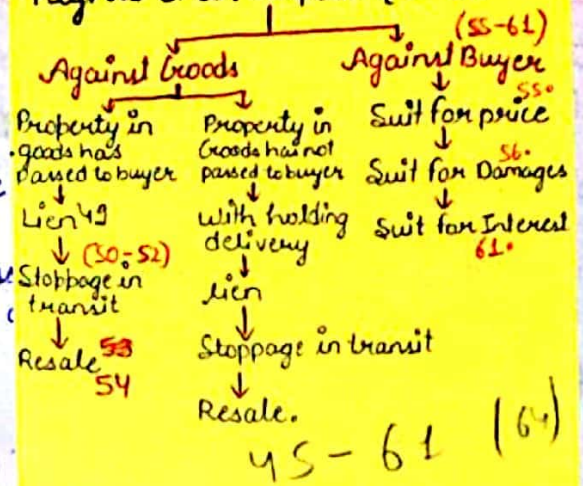 (55-61)
Against Goods
Against Buyer
Property in
goods has
passed to buyer
Lien 49
(50-52)
Stoppage in
transit
Resale 53
54
Property in
Goods has not
passed to buyer
with holding
delivery
lien
Stoppage in transit
Resale.
55.
Suit for price
56.
Suit for Damages
Suit for Interest
61.
45-61 (64)